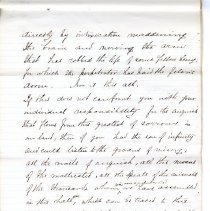 directly by intoxication maddening
the brain and moving the arm
that has robbed the life of some fellow being,
for which the perpetrator has paid the felons
doom. Nor is this all.
If this does not confront you with your
individual responsibility for the anguish
that flows from this greatest of sorrows
in land, then if you had the ear of infinity
and could listen to the groans of misery,
all the wails of anguish, all the moans
of the
of the thousands who have assembled
in this that which can be traced to this